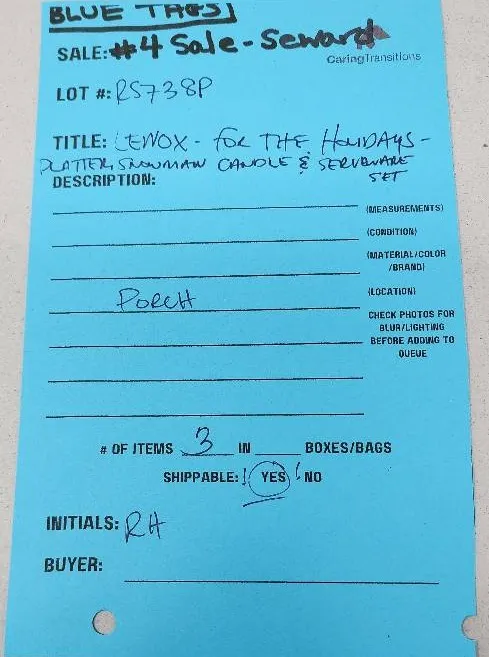 BLUE TAGS!
SALE: #4 Sale - Seward
CaringTransitions
LOT #: RS738P
TITLE: LENOX - FOR THE HOLIDAYS -
PLATTER, SNOWMAN CANDLE & SERVEWARE
SET
DESCRIPTION:
(MEASUREMENTS)
(CONDITION)
(MATERIAL/COLOR
/BRAND)
PORCH
(LOCATION)
CHECK PHOTOS FOR
BLUR/LIGHTING
BEFORE ADDING TO
QUEUE
# OF ITEMS 3 IN ____ BOXES/BAGS
SHIPPABLE: ! YES ! NO
INITIALS: RH
BUYER: